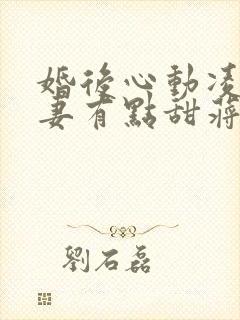 婚後心動凌
妻有點甜蔣
劉石磊